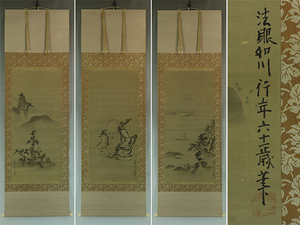 法眼如川行年六十二歳筆